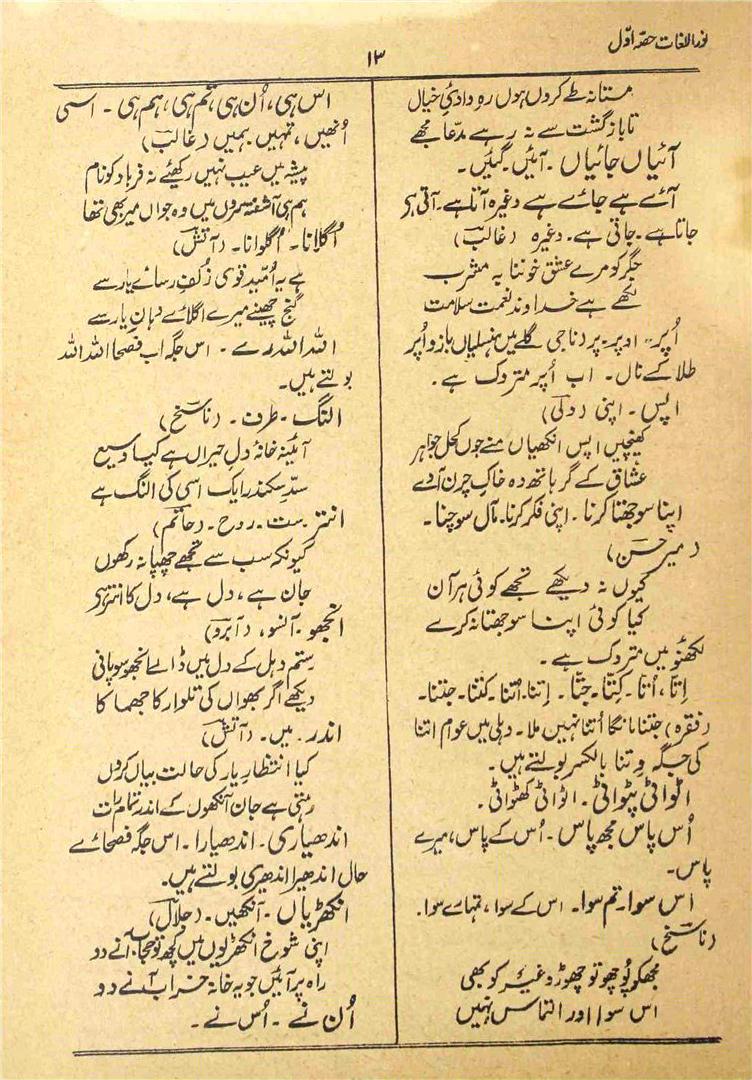 نوراللغات حصہ اوّل
۱۳
مستانہ طے کروں ہوں رہِ وادیِ خیال
تا بازگشت سے نہ رہے مدّعا مجھے
آئیاں جائیاں ۔ آئیں ۔ گئیں ۔
آئے ہے جائے ہے وغیرہ آتا ہے ۔ آتی ہی
جاتا ہے ۔ جاتی ہے ۔ وغیرہ (غالبؔ)
جگر کو مرے عشق خوننابہ مشرب
لکھے ہے خداوند نعمت سلامت
اُپر ۔ اوپر ۔ پر (ناجی گلے میں ہنسلیاں بازو اُپر
طلا کے نال ۔ اب اُپر متروک ہے ۔
اپس ۔ اپنی (ولیؔ)
کھینچیں اپس انکھیاں منے جوں کحل جواہر
عشاق کے گر ہاتھ وہ خاکِ چرن آدے
اپنا سوجھتا کرنا ۔ اپنی فکر کرنا ۔ مآل سوچنا ۔
(میر حسنؔ)
کیوں نہ دیکھے تجھے کوئی ہر آن
کیا کوئی اپنا سوجھتا نہ کرے
لکھنؤ میں متروک ہے ۔
اِتّا ، اُتّا ۔ کِتّا ۔ جِتّا ۔ اِتنا ۔ اُتنا ۔ کتنا ۔ جتنا ۔
(فقرہ) جتنا مانگا اُتنا نہیں ملا ۔ دہلی میں عوام اتنا
کی جگہ وِتنا بالکسر بولتے ہیں ۔
اٹوائی پٹوائی ۔ اٹوائی کھٹوائی ۔
اُس پاس مجھ پاس ۔ اُس کے پاس ، میرے
پاس ۔
اس سوا ۔ تم سوا ۔ اس کے سوا ، تمہارے سوا ۔
(ناسخؔ)
مجھکو پوچھو تو چھوڑو غیر کو بھی
اس سوا اور التماس نہیں
اس ہی ، اُن ہی ، تم ہی ، ہم ہی ۔ اسی
اُنھیں ، تمہیں ہمیں (غالبؔ)
پیشہ میں عیب نہیں رکھئے نہ فرہاد کو نام
ہم ہی آشفتہ سروں میں وہ جواں میر بھی تھا
اُگلانا ۔ اُگلوانا ۔ (آتشؔ)
ہے یہ اُمّید قوی زُلفِ رسائے یار سے
گنج چھینے میرے اگلائے دہانِ یار سے
اللہ اللہ رے ۔ اس جگہ اب فصحا اللہ اللہ
بولتے ہیں ۔
النگ ۔ طرف ۔ (ناسخؔ)
آئینہ خانۂ دلِ حیراں ہے کیا وسیع
سدِّ سکندر ایک اسی کی النگ ہے
انتر ۔ ست ۔ روح ۔ (حاتمؔ)
کیونکہ سب سے تجھے چھپا نہ رکھوں
جان ہے ، دل ہے ، دل کا انتر ہی
انجھو ۔ آنسو ، (آبروؔ)
رستم دہل کے دل میں ڈالے انجھو سو پانی
دیکھے اگر بھواں کی تلوار کا جھماکا
اندر ۔ میں ۔ (آتشؔ)
کیا انتظارِ یار کی حالت بیاں کروں
رہتی ہے جان آنکھوں کے اندر تمام رات
اندھیاری ۔ اندھیارا ۔ اس جگہ فصحائے
حال اندھیرا اندھری بولتے ہیں ۔
انکھڑیاں ۔ آنکھیں ۔ (جلالؔ)
اپنی شوخ انکھڑیوں میں کچھ تو حجاب آنے دو
راہ پر آئیں جو یہ خانہ خراب آنے دو
اُن نے ۔ اُس نے ۔